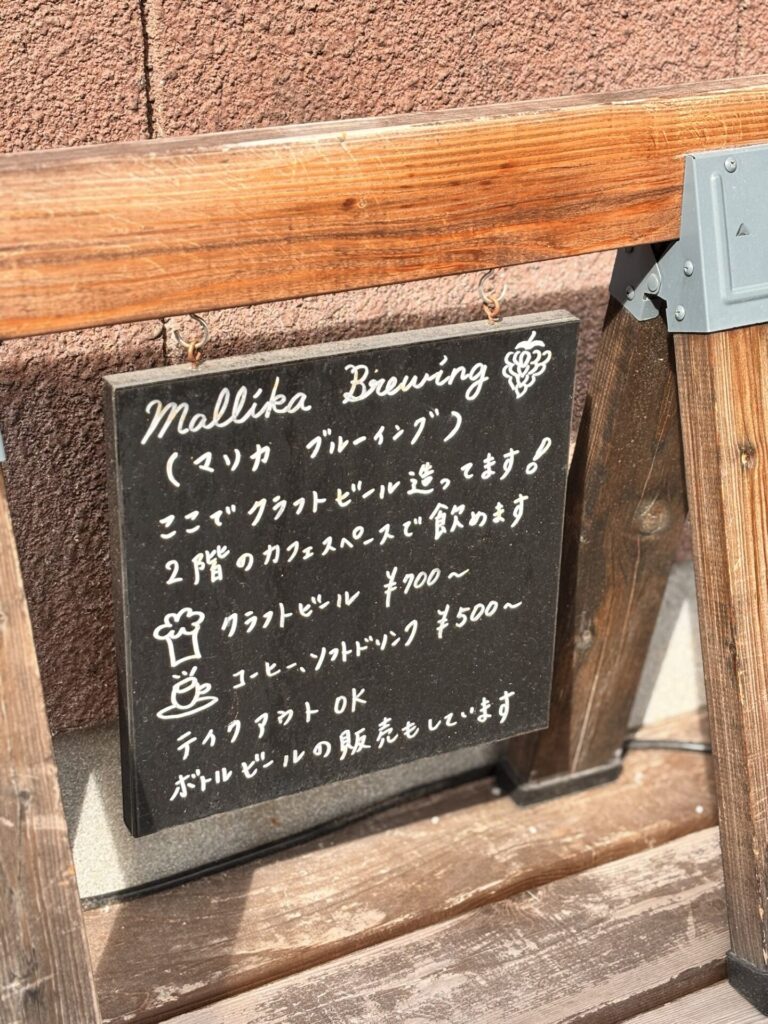 Mallika Brewing
(マリカ ブルーイング)
ここでクラフトビール造ってます!
2階のカフェスペースで飲めます
クラフトビール ¥700～
コーヒー、ソフトドリンク ¥500～
テイクアウト OK
ボトルビールの販売もしています